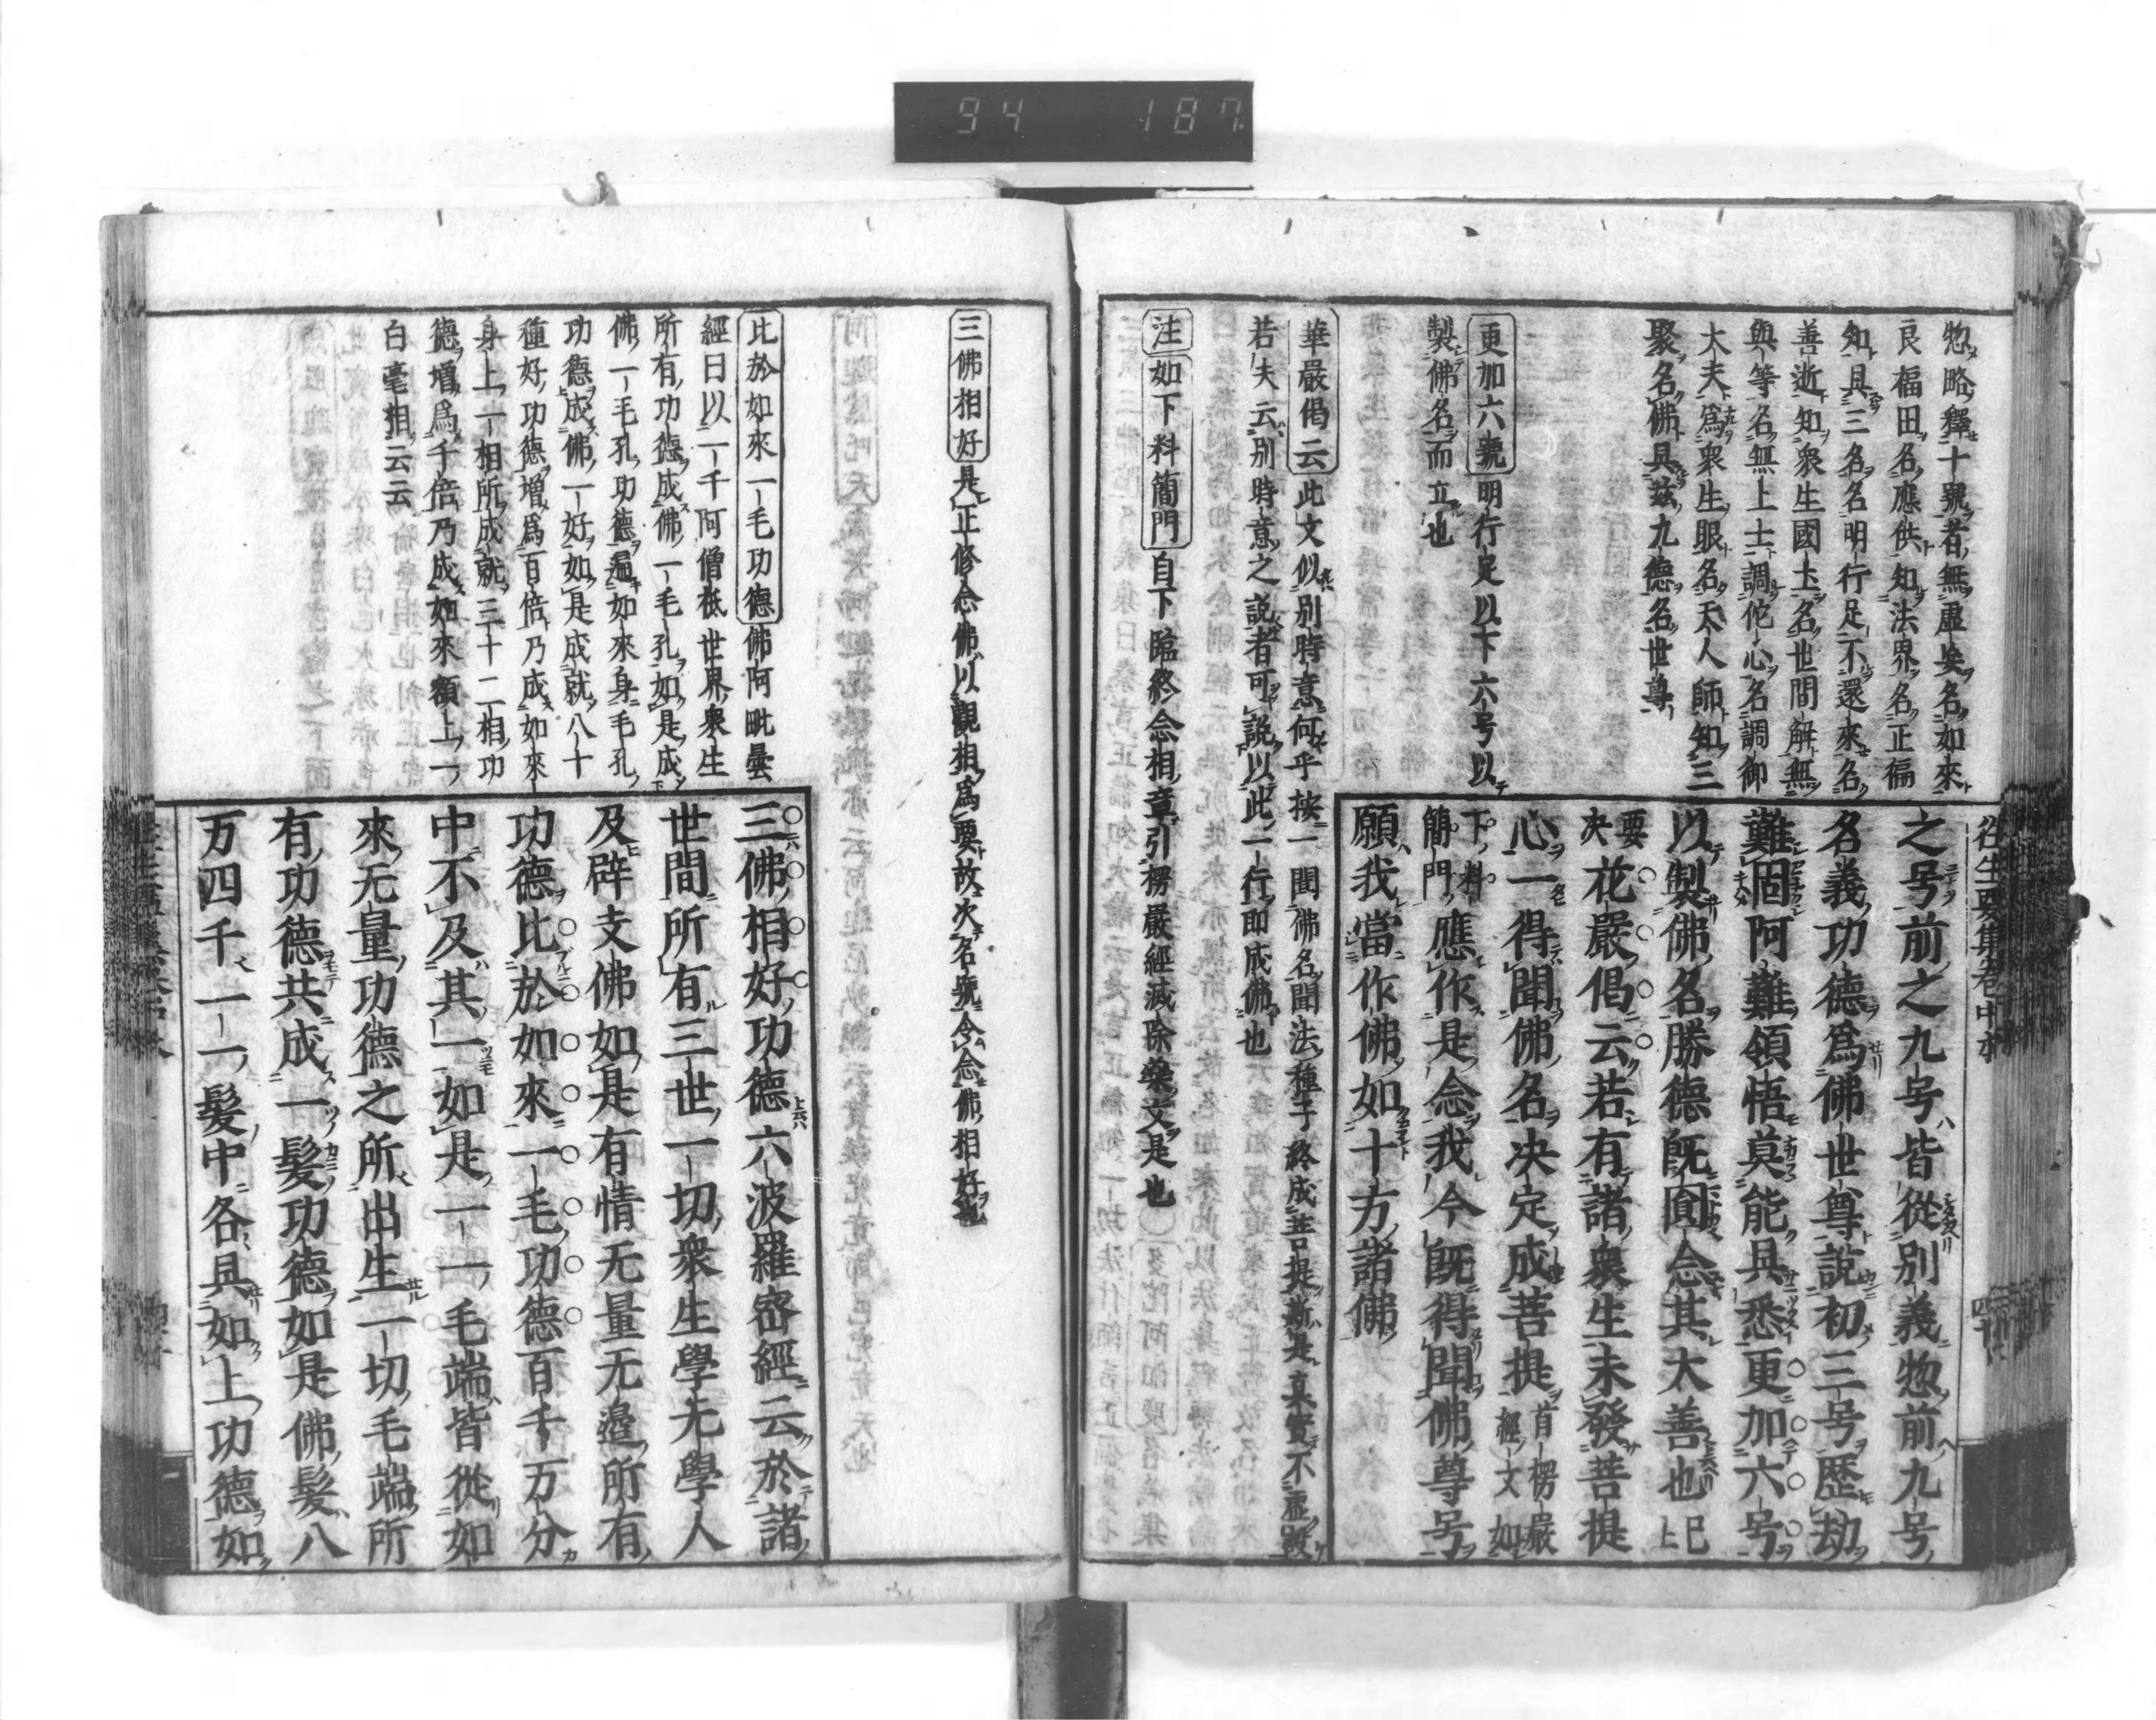 94 187
惣略釋十號者無虛妄名如來
良福田名應供知法界名正徧
知具三名名明行足不還來名
善逝知衆生國土名世間解無
與等名無上士調佗心名調御
大夫爲衆生眼名天人師知三
聚名佛具玆九德名世尊
更加六號明行足以下六号以
製佛名而立也
華嚴偈云此文似別時意何乎按一聞佛名聞法種子終成菩提斯是真實不虛設
若夫云別時意之說者可說以此一行即成佛也
注如下料簡門自下臨終念相章引楞嚴經滅除藥文是也
往生要集卷中本
之号前之九号皆從別義惣前九号
名義功德爲佛世尊說初三号歷劫
難固阿難領悟莫能具悉更加六号
以製佛名勝德既圓念其太善也已上
要決花嚴偈云若有諸衆生未發菩提
心一得聞佛名决定成菩提首楞嚴經文如
下料簡門應作是念我今既得聞佛尊号
願我當作佛如十方諸佛
三佛相好是正修念佛以觀相爲要故次名號令念佛相好也
比於如來一毛功德佛阿毗曇
經曰以一千阿僧祇世界衆生
所有功德成佛一毛孔如是成
佛一毛孔功德遍如來身毛孔
功德成佛一好如是成就八十
種好功德增爲百倍乃成如來
身上一相所成就三十二相功
德增爲千倍乃成如來額上一
白毫相云云
三佛相好功德六波羅宻經云於諸
世間所有三世一切衆生學无學人
及辟支佛如是有情无量无邉所有
功德比於如來一毛功德百千万分
中不及其一如是一一毛端皆從如
來无量功德之所出生一切毛端所
有功德共成一髪功德如是佛髪八
万四千一一髪中各具如上功德如